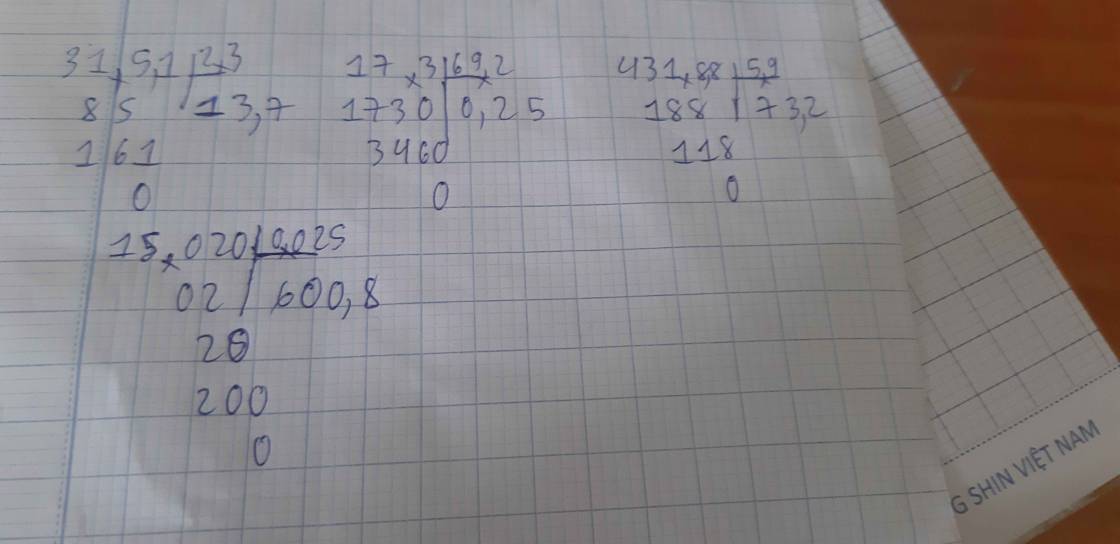 31,5,1 2,3 17,3 69,2 431,8,8 5,9
85 13,7 1730 0,25 188 73,2
161 3460 118
0 0 0
15,020 0,025
02 600,8
20
200
0
G SHIN VIỆT NAM